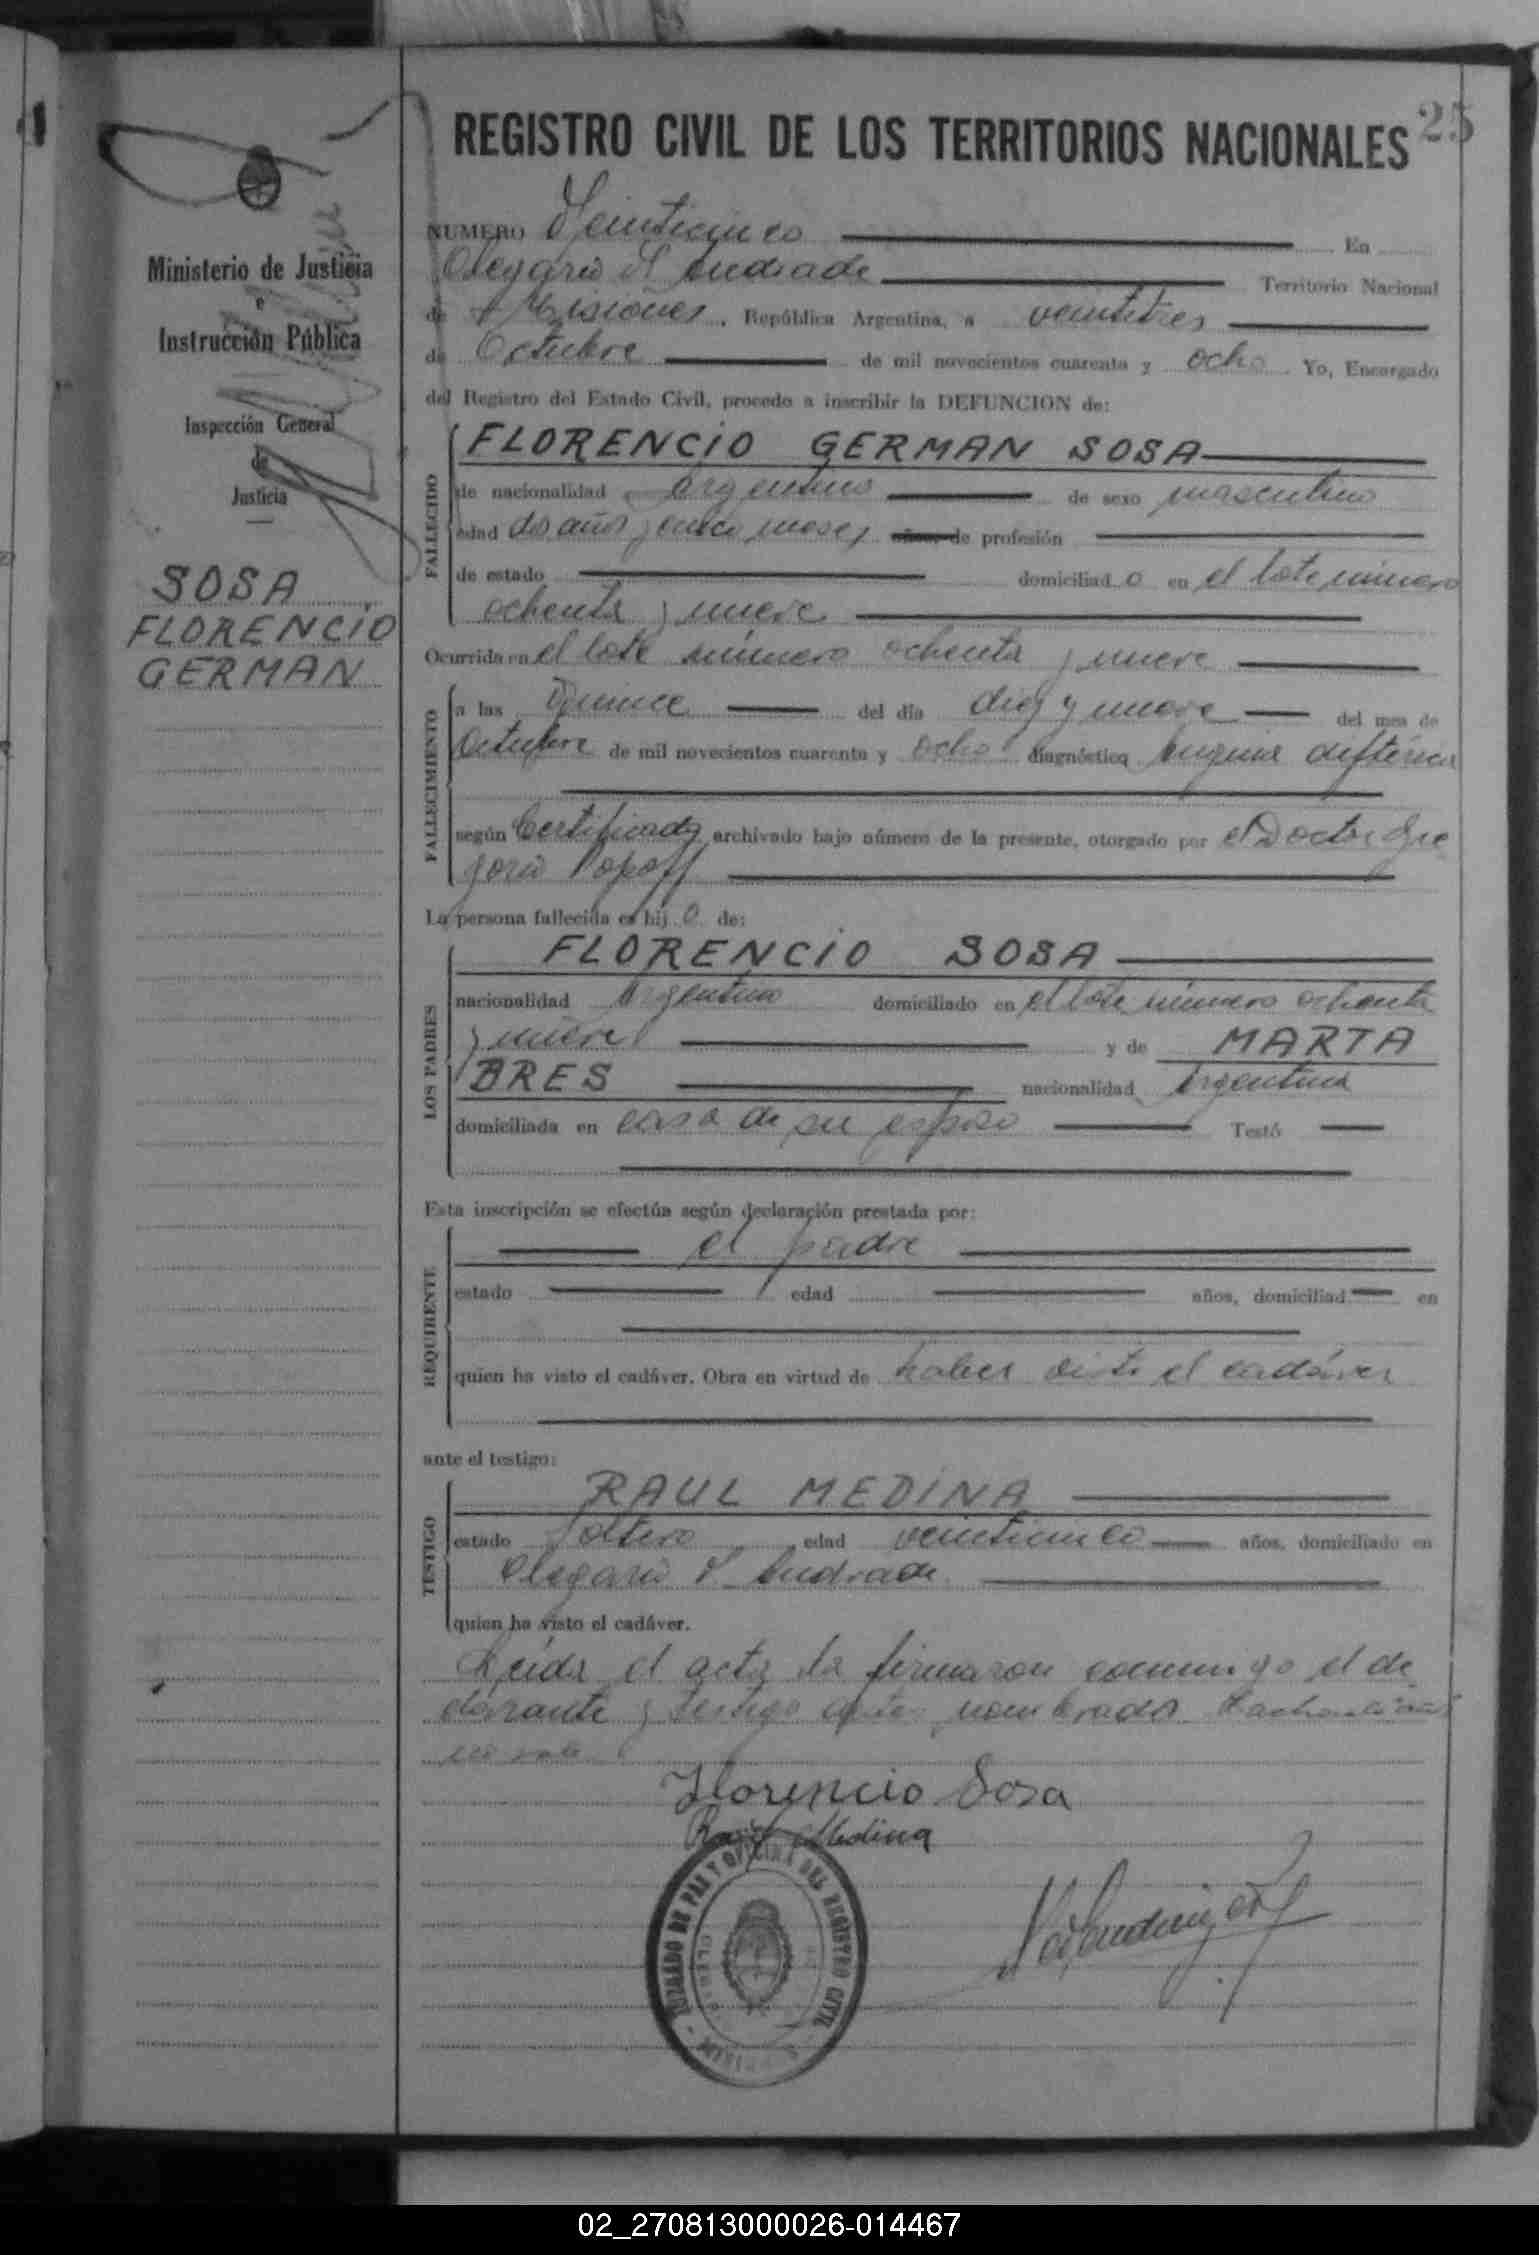 25
REGISTRO CIVIL DE LOS TERRITORIOS NACIONALES
Ministerio de Justicia
e
Instrucción Pública
Inspección General
de
Justicia
SOSA
FLORENCIO
GERMAN
NUMERO Veinticinco En
Olegario V. Andrade Territorio Nacional
de Misiones, República Argentina, a veintitres
de Octubre de mil novecientos cuarenta y ocho. Yo, Encargado
del Registro del Estado Civil, procedo a inscribir la DEFUNCION de:
FALLECIDO
FLORENCIO GERMAN SOSA
de nacionalidad argentino de sexo masculino
edad dos años y once meses años, de profesión
de estado domiciliad o en el lote número
ochenta y nueve
Ocurrida en el lote número ochenta y nueve
FALLECIMIENTO
a las Quince del día diez y nueve del mes de
Octubre de mil novecientos cuarenta y ocho diagnóstico Angina diftérica
según Certificado archivado bajo número de la presente, otorgado por el Doctor Gre
gorio Popoff
La persona fallecida es hij o de:
LOS PADRES
FLORENCIO SOSA
nacionalidad Argentino domiciliado en el lote número ochenta
y nueve y de MARTA
BRES nacionalidad Argentina
domiciliada en casa de su esposo Testó
Esta inscripción se efectúa según declaración prestada por:
REQUIRENTE
el padre
estado edad años, domiciliad en
quien ha visto el cadáver. Obra en virtud de haber visto el cadáver
ante el testigo:
TESTIGO
RAUL MEDINA
estado Soltero edad veinticinco años, domiciliado en
Olegario V. Andrade
quien ha visto el cadáver.
Leída el acta la firmaron conmigo el de
clarante y testigo antes nombrado
no vale
Florencio Sosa
Raúl Medina
JUZGADO DE PAZ Y OFICINA DEL REGISTRO CIVIL
02_270813000026-014467